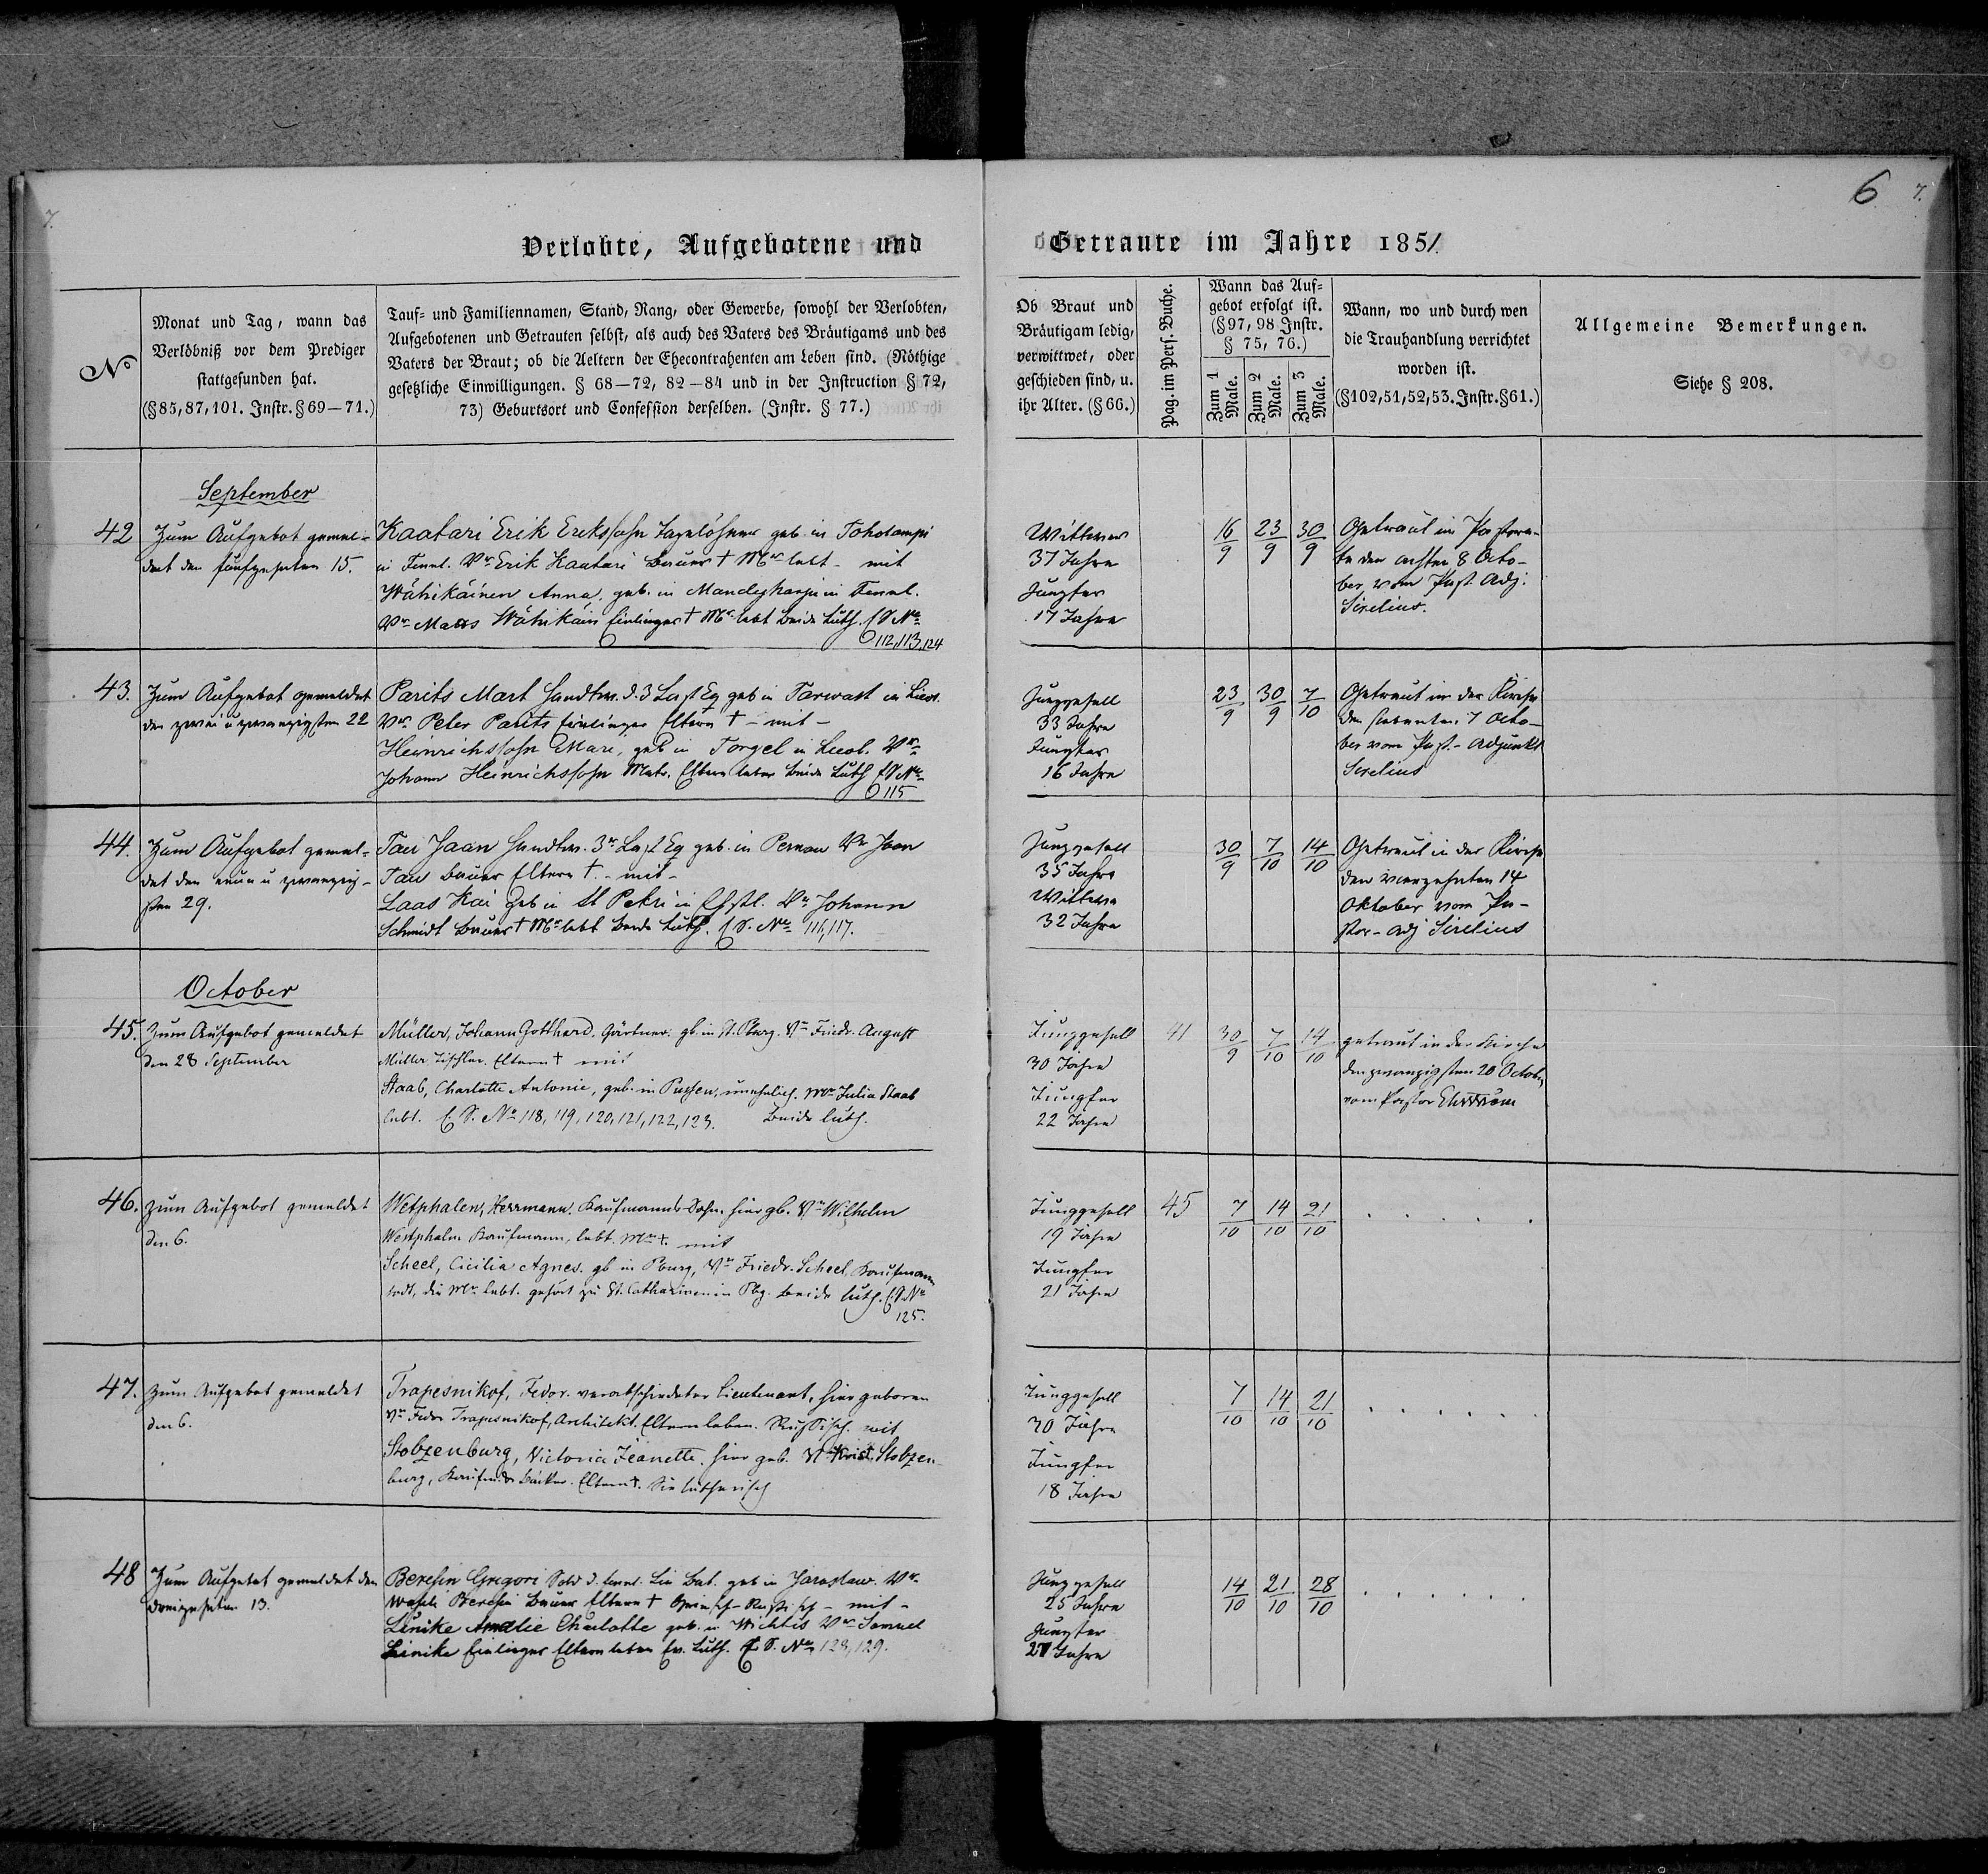 7.
6 7.
Verlobte, Aufgebotene und
Getraute im Jahre 1851
No
Monat und Tag, wann das
Verlöbniß vor dem Prediger
stattgefunden hat.
(§85,87,101. Instr. §69—71.)
Tauf- und Familiennamen, Stand, Rang, oder Gewerbe, sowohl der Verlobten,
Aufgebotenen und Getrauten selbst, als auch des Vaters des Bräutigams und des
Vaters der Braut; ob die Aeltern der Ehecontrahenten am Leben sind. (Nöthige
gesetzliche Einwilligungen. § 68—72, 82—84 und in der Instruction § 72,
73) Geburtsort und Confession derselben. (Instr. § 77.)
Ob Braut und
Bräutigam ledig,
verwittwet, oder
geschieden sind, u.
ihr Alter. (§66.)
Pag. im Pers. Buche.
Wann das Auf-
gebot erfolgt ist.
(§97, 98 Instr.
§ 75, 76.)
Zum 1 Male.
Zum 2 Male.
Zum 3 Male.
Wann, wo und durch wen
die Trauhandlung verrichtet
worden ist.
(§102,51,52,53. Instr. §61.)
Allgemeine Bemerkungen.
Siehe § 208.
September
42
Zum Aufgebot gemel-
det den fünfzehnten 15.
Kaatari Erik Erikssohn Tagelöhner geb. in Tohotampi
in Finnl. Vr Erik Kaatari Bauer † Mr lebt - mit
Wähikäinen Anna, geb. in in Finnl.
Vr Matts Wähikäin Einlieger † Mr lebt Beide Luth. No
112, 113, 124
Wittwer
37 Jahre
Jungfer
17 Jahre
16/9 23/9 30/9
Getraut im Pastora-
te den achten 8 Octo-
ber vom Past. Adj.
Sirelius.
43.
Zum Aufgebot gemeldet
den zwei u zwanzigsten 22
Parits Mart d. 3 geb in Tarwast in
Vr Peter Parits Einlieger Eltern † - mit -
Heinrichssohn Mari, geb in Torgel in Vr
Johann Heinrichssohn Eltern leben Beide Luth No
115
Junggesell
33 Jahre
Jungfer
16 Jahre
23/9 30/9 7/10
Getraut in der Kirche
den siebenten 7 Octo-
ber vom Past.-Adjunkt
Sirelius
44.
Zum Aufgebot gemel-
det den neun u zwanzig-
sten 29.
Tau Jaan 3r geb. in Pernau Vr Jaan
Tau Bauer Eltern †. - mit -
Laas Kai geb in St Petri in Ehstl. Vr Johann
Schmidt Bauer † Mr lebt Beide Luth. No 116, 117.
Junggesell
35 Jahre
Wittwe
32 Jahre
30/9 7/10 14/10
Getraut in der Kirche
den vierzehnten 14
Oktober vom Pa-
stor-Adj Sirelius
October
45.
Zum Aufgebot gemeldet
den 28 September
Müller, Johann Gotthard. Gärtner. gb. in St. Pburg. Vr Friedr. August
Müller Tischler. Eltern † mit
Staab, Charlotte Antonie, geb. in unehelich. Mr Julia Staab
lebt. No 118, 119, 120, 121, 122, 123. Beide luth.
Junggesell
30 Jahre
Jungfer
22 Jahre
41
30/9 7/10 14/10
getraut in der Kirche
den zwanzigsten 20 Octob.
vom Pastor Ehrström
46.
Zum Aufgebot gemeldet
den 6.
Westphalen, Herrmann. Kaufmanns-Sohn. hier gb. Vr Wilhelm
Westphalen Kaufmann, lebt. Mr †. mit
Scheel, Cicilia Agnes. gb in Pburg, Vr Friedr. Scheel, Kaufmann
todt, die Mr lebt. gehört zu St. Catharinen in Pbg. Beide luth. No
125.
Junggesell
19 Jahre
Jungfer
21 Jahre
45
7/10 14/10 21/10
. . . . .
47.
Zum Aufgebot gemeldet
den 6.
Trapesnikof, Fedor. verabschiedeter Lieutenant, hier geboren
Vr Fedor Trapesnikof, Architekt. Eltern leben. Russisch. mit
Stobzenburg, Victoria Jeanette. hier geb. Vr Stobzen-
burg, Bäcker. Eltern †. Sie lutherisch
Junggesell
30 Jahre
Jungfer
18 Jahre
7/10 14/10 21/10
. . . . .
48
Zum Aufgebot gemeldet den
dreizehnten 13.
Beresin Gregori Sold d. finnl. Lin Bat. geb in Jaroslaw. Vr
Wasili Beresin Bauer Eltern † Griechisch-Russisch - mit -
Linike Amalie Charlotte geb. in Wichtis Vr Samuel
Linike Einlieger Eltern leben Ev. Luth. No 128, 129.
Junggesell
25 Jahre
Jungfer
27 Jahre
14/10 21/10 28/10
. . . . .